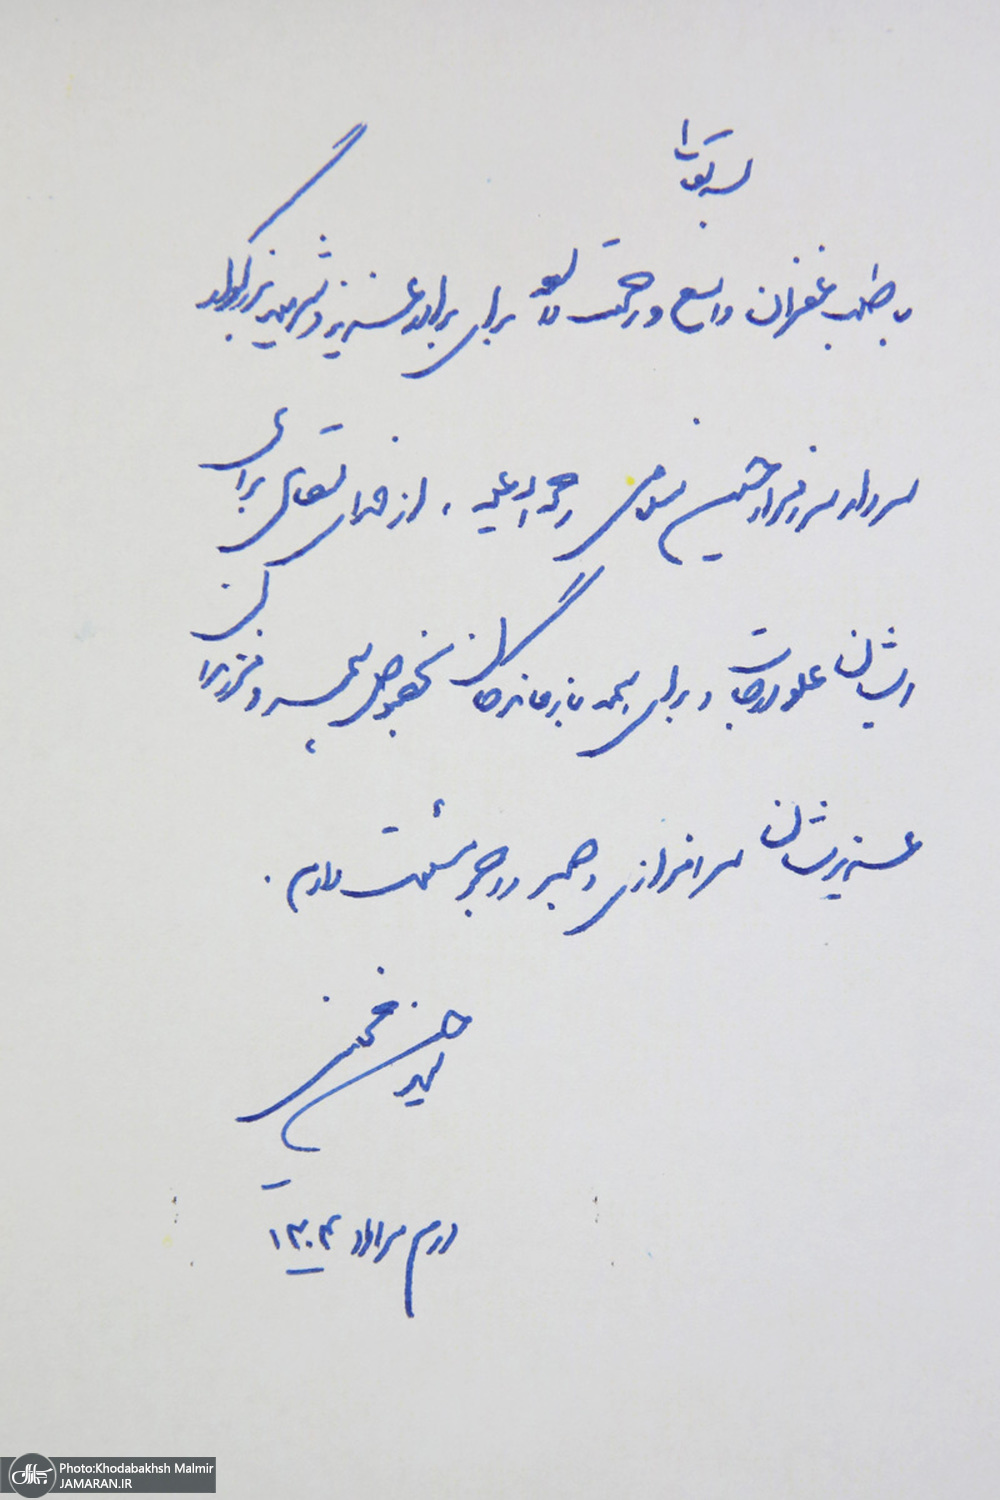 بسمه تعالی
با طلب غفران واسع و رحمت واسعه برای برادر عزیز و شهید بزرگوار
سردار سرافراز حسین سلامی رحمه الله علیه ، از خدای متعال برای
ایشان علو درجات و برای همه بازماندگان بخصوص همسر و فرزندان
عزیزشان سرافرازی و صبر و اجر مسئلت دارم .
سید حسن خمینی
دوم مرداد ۱۴۰۴
جماران
Photo:Khodabakhsh Malmir
JAMARAN.IR